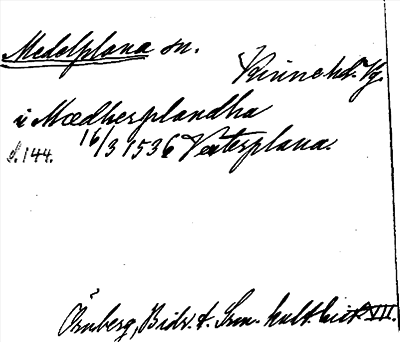 Medelplana sn.
Kinne hd. Vg.
i Mædherplandha
s. 144. 16/3 1536 Vesterplana.
Örnberg, Bidr. t. Svn. kult. hist. VII.